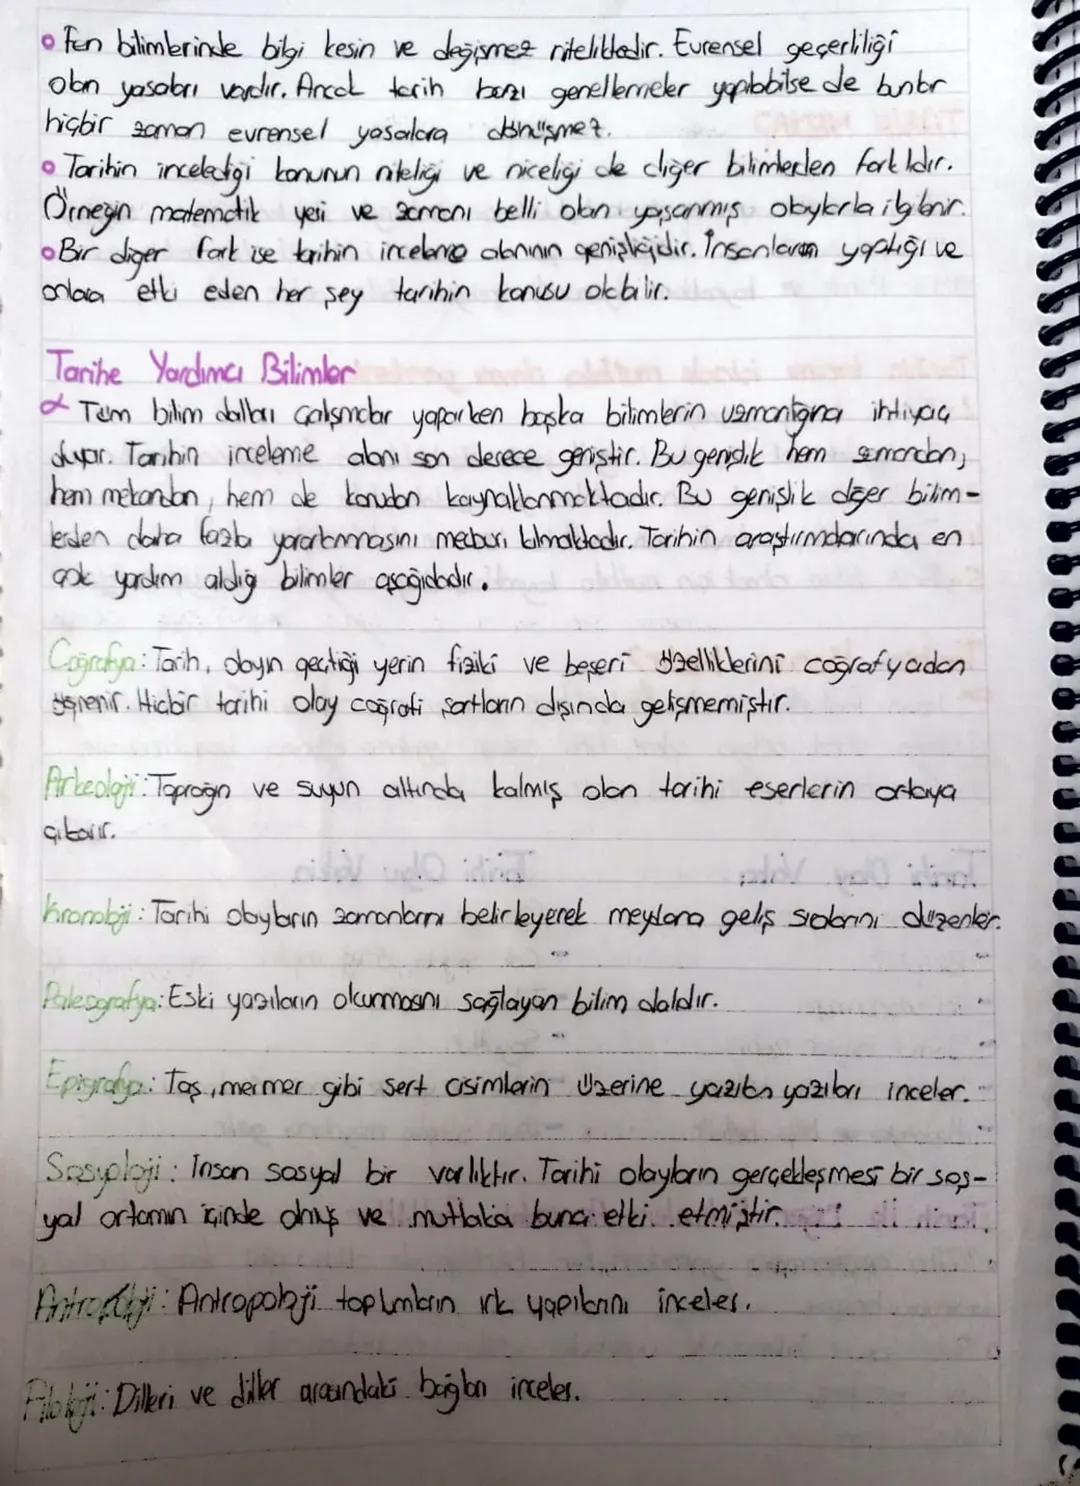 • Fen bilimlerinde bilgi kesin ve değişmez niteliktedir. Evrensel geçerliliği
olan yasaları vardır. Ancak tarih bazı genellemeler yapılabilse de bunlar
hiçbir zaman evrensel yasalara dönüşmez.
• Tarihin incelediği konunun niteliği ve niceliği de diğer bilimlerden farklıdır.
Örneğin matematik yeri ve zamanı belli olan yaşanmış olaylarla ilgilenir.
• Bir diğer fark ise tarihin inceleme alanının genişliğidir. İnsanların yaptığı ve
onlara etki eden her şey tarihin konusu olabilir.
Tarihe Yardımcı Bilimler
Tüm bilim dalları çalışmalar yaparken başka bilimlerin uzmanlığına ihtiyaç
duyar. Tarihin inceleme alanı son derece geniştir. Bu genişlik hem zamandan,
hem mekandan, hem de konudan kaynaklanmaktadır. Bu genişlik diğer bilim-
lerden daha fazla yararlanmasını mecburi kılmaktadır. Tarihin araştırmalarında en
çok yardım aldığı bilimler aşağıdadır.
Coğrafya: Tarih, olayın geçtiği yerin fiziki ve beşeri özelliklerini coğrafyadan
öğrenir. Hiçbir tarihi olay coğrafi şartların dışında gelişmemiştir.
Arkeoloji: Toprağın ve suyun altında kalmış olan tarihi eserlerin ortaya
çıkarır.
Kronoloji: Tarihi olayların zamanlarını belirleyerek meydana geliş sıralarını düzenler.
Paleografya: Eski yazıların okunmasını sağlayan bilim dalıdır.
Epigrafya: Taş, mermer gibi sert cisimlerin üzerine yazılan yazıları inceler.
Sosyoloji: İnsan sosyal bir varlıktır. Tarihi olayların gerçekleşmesi bir sos-
yal ortamın içinde olmuş ve mutlaka buna etki etmiştir.
Antropoloji: Antropoloji toplumların ırk yapılarını inceler.
Filoloji: Dilleri ve diller arasındaki bağları inceler.